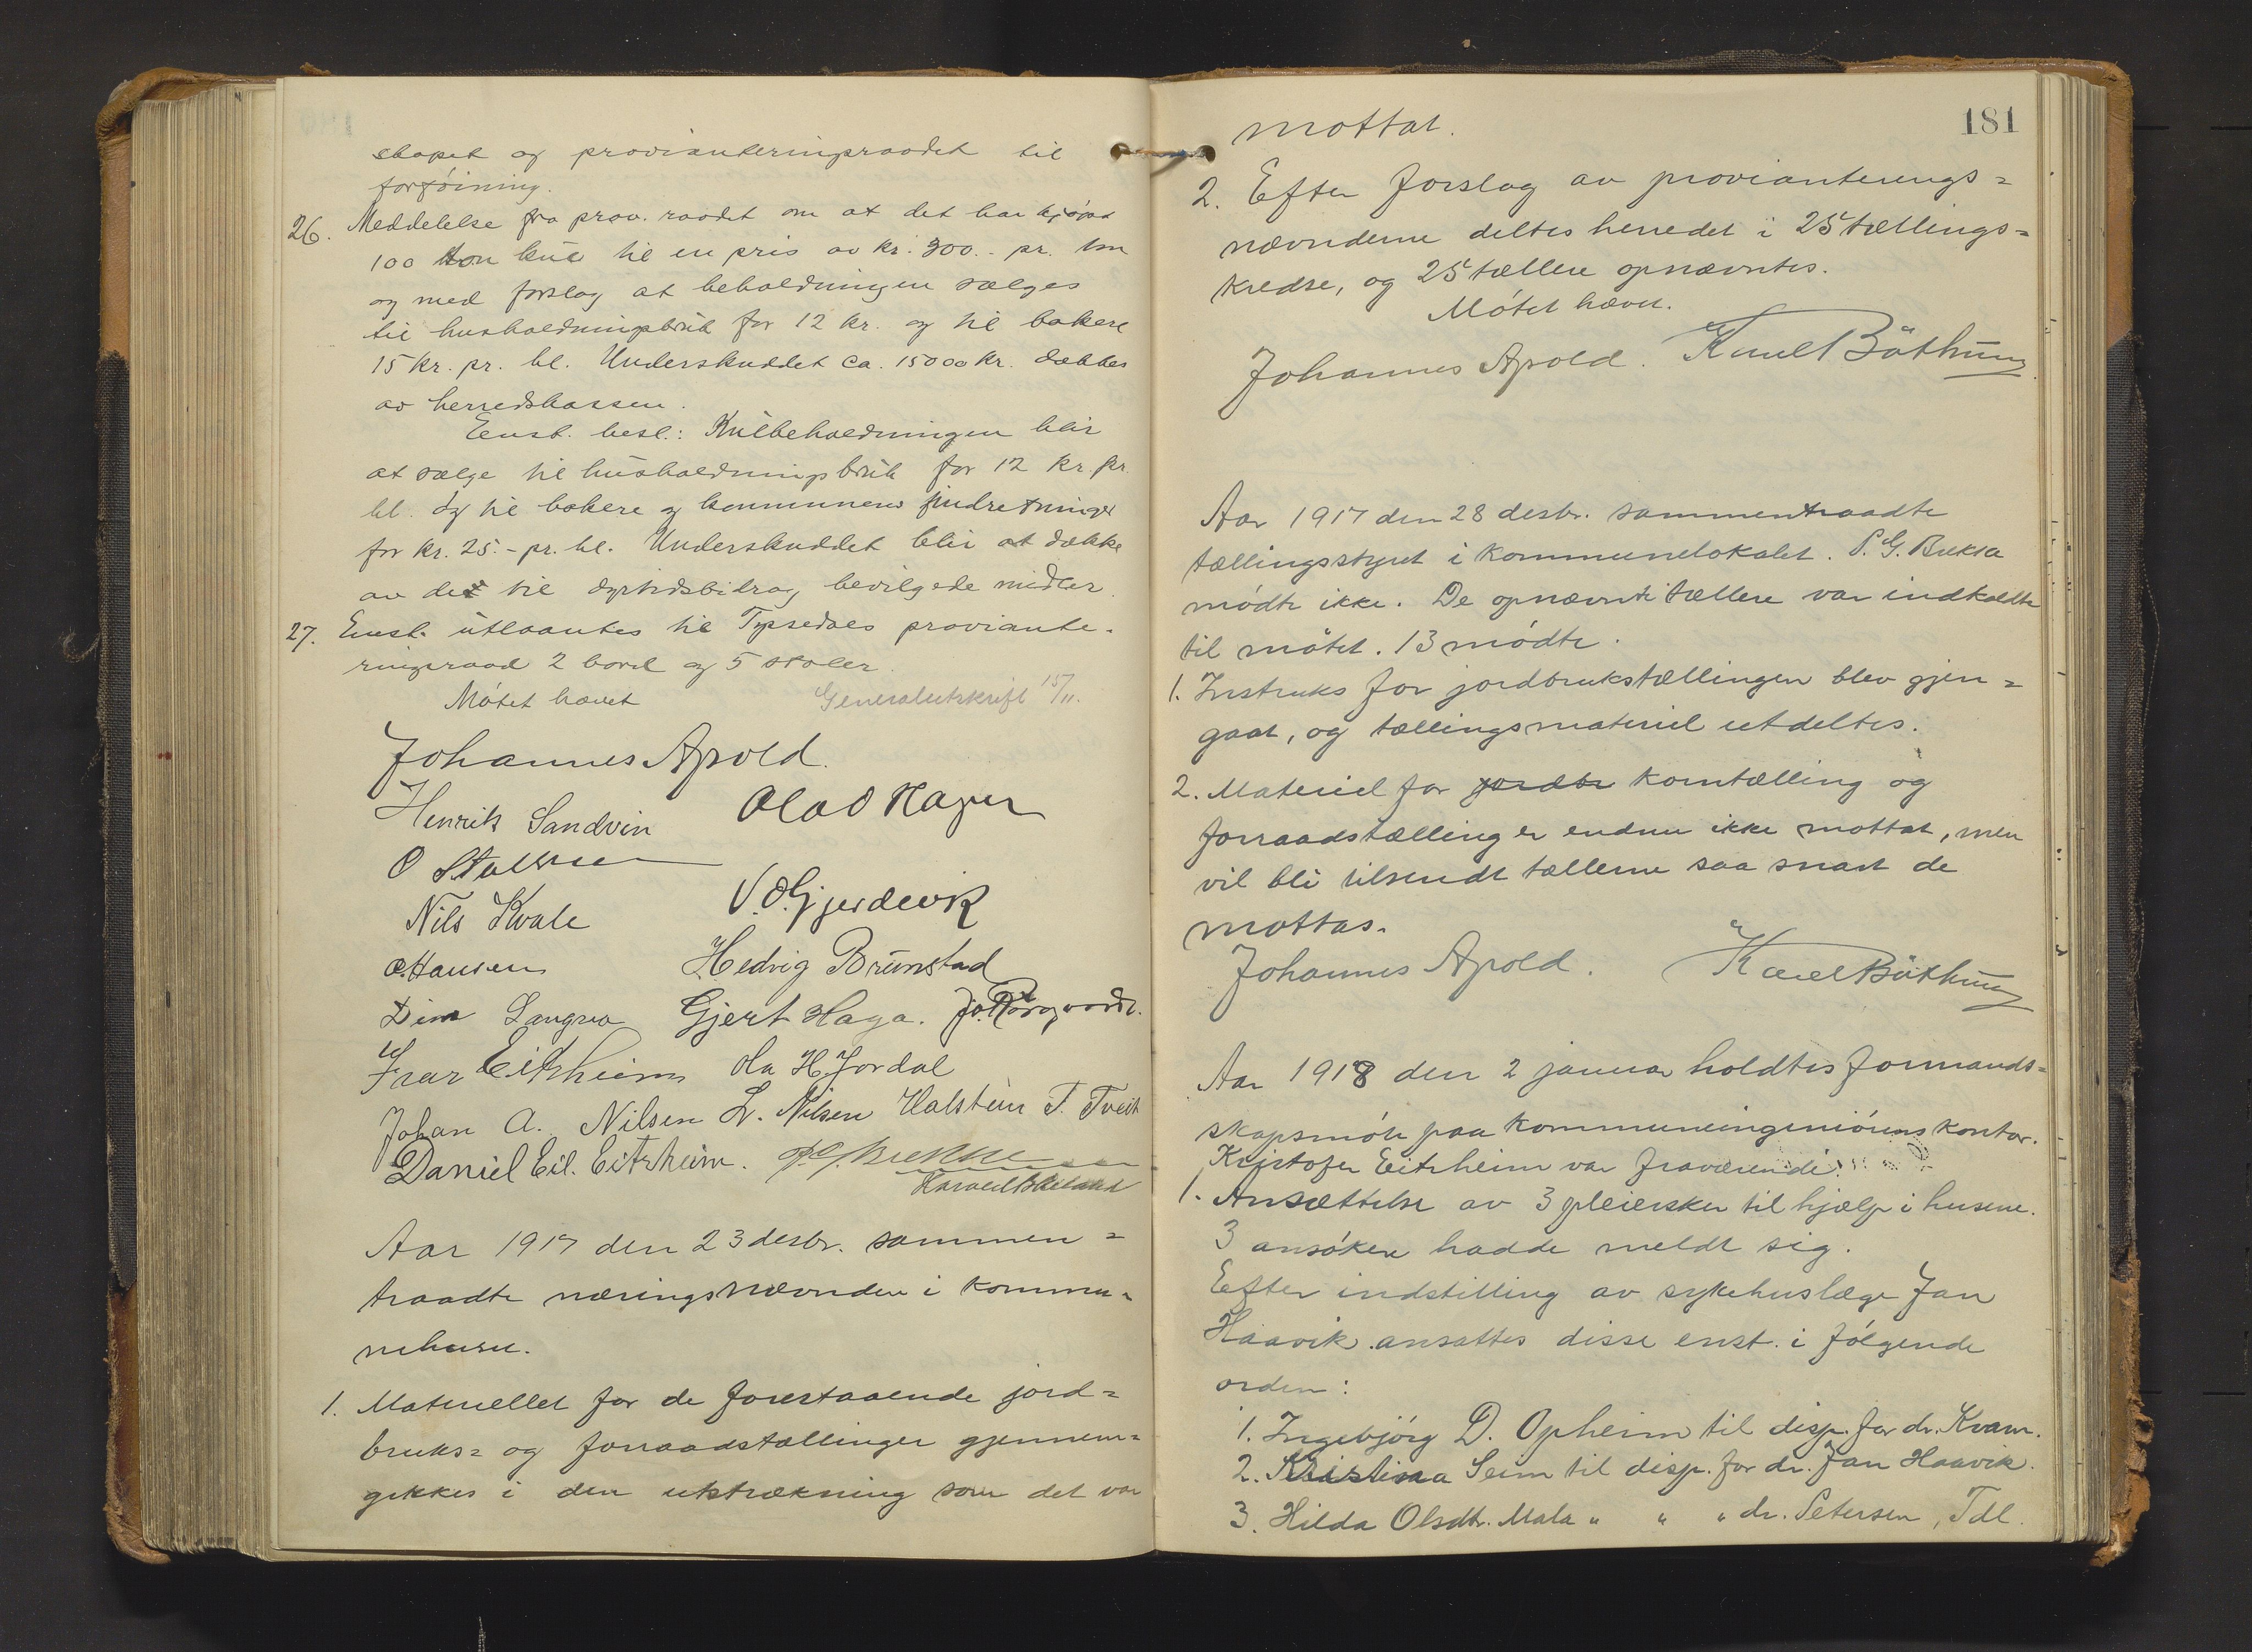 skapet og provianteringsraadet til
forføining.
26. Meddelelse fra prov. raadet om at det har kjøpt
100 ton kul til en pris av kr. 300.- pr. ton
og med forslag at beholdningen sælges
til husholdningsbruk for 12 kr. og til bakere
15 kr. pr. hl. Underskuddet ca. 15000 kr. dækkes
av herredskassen.
Enst. besl.: Kulbeholdningen blir
at sælge til husholdningsbruk for 12 kr. pr.
hl. og til bakere og kommunens indretninger
for kr. 25.- pr. hl. Underskuddet blir at dække
av de til dyrtidsbidrag bevilgede midler.
27. Enst. utlaantes til Tyssedals proviante-
ringsraad 2 bord og 5 stoler.
Møtet hævet
Generalutskrift 15/11.
Johannes Apold.
Henrik Sandvin Olav Hagen
O
Nils Kvale V. O. Gjerdevik
O. Hansen Hedvig Brunstad
Gjert Haga.
Ivar Eitrheim Ola H. Jordal
Johan A. Nilsen L. Nilsen Halstein T. Tveit
Daniel Eil. Eitrheim.
Aar 1917 den 23 desbr. sammen=
traadte næringsnævnden i kommu-
nehuset.
1. Materiellet for de forestaaende jord=
bruks= og forraadstællinger gjennem=
gikkes i den utstrækning som det var
181
mottat.
2. Efter forslag av provianterings=
nævnderne deltes herredet i 25 tællings=
kredse, og 25 tællere opnævntes.
Møtet hævet.
Johannes Apold. Karel Böthun
Aar 1917 den 28 desbr. sammentraadte
tællingsstyret i kommunelokalet. P. G. Brekke
mødte ikke. De opnævnte tællere var indkaldte
til møtet. 13 mødte.
1. Instruks for jordbrukstællingen blev gjen=
gaat, og tællingsmateriel utdeltes.
2. Materiel for jordbr korntælling og
forraadstælling er endnu ikke mottat, men
vil bli tilsendt tællerne saa snart de
mottas.
Johannes Apold. Karel Böthun
Aar 1918 den 2 januar holdtes formands=
skapsmøte paa kommuneingeniørens kontor.
Kristofer Eitrheim var fraværende.
1. Ansættelse av 3 pleiersker til hjælp i husene.
3 ansøkere hadde meldt sig.
Efter indstilling av sykehuslæge Jan
Haavik ansattes disse enst. i følgende
orden:
1. Ingebjørg D. Opheim til disp. for dr. Kvam.
2. Kristina Seim til disp. for dr. Jan Haavik.
3. Hilda Olsdtr. Mala " " " dr. Petersen, Tdl.